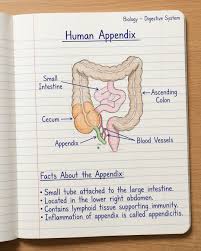 Biology – Digestive System
Human Appendix
Small Intestine
Ascending Colon
Cecum
Appendix
Blood Vessels
Facts About the Appendix:
• Small tube attached to the large intestine.
• Located in the lower right abdomen.
• Contains lymphoid tissue supporting immunity.
• Inflammation of appendix is called appendicitis.